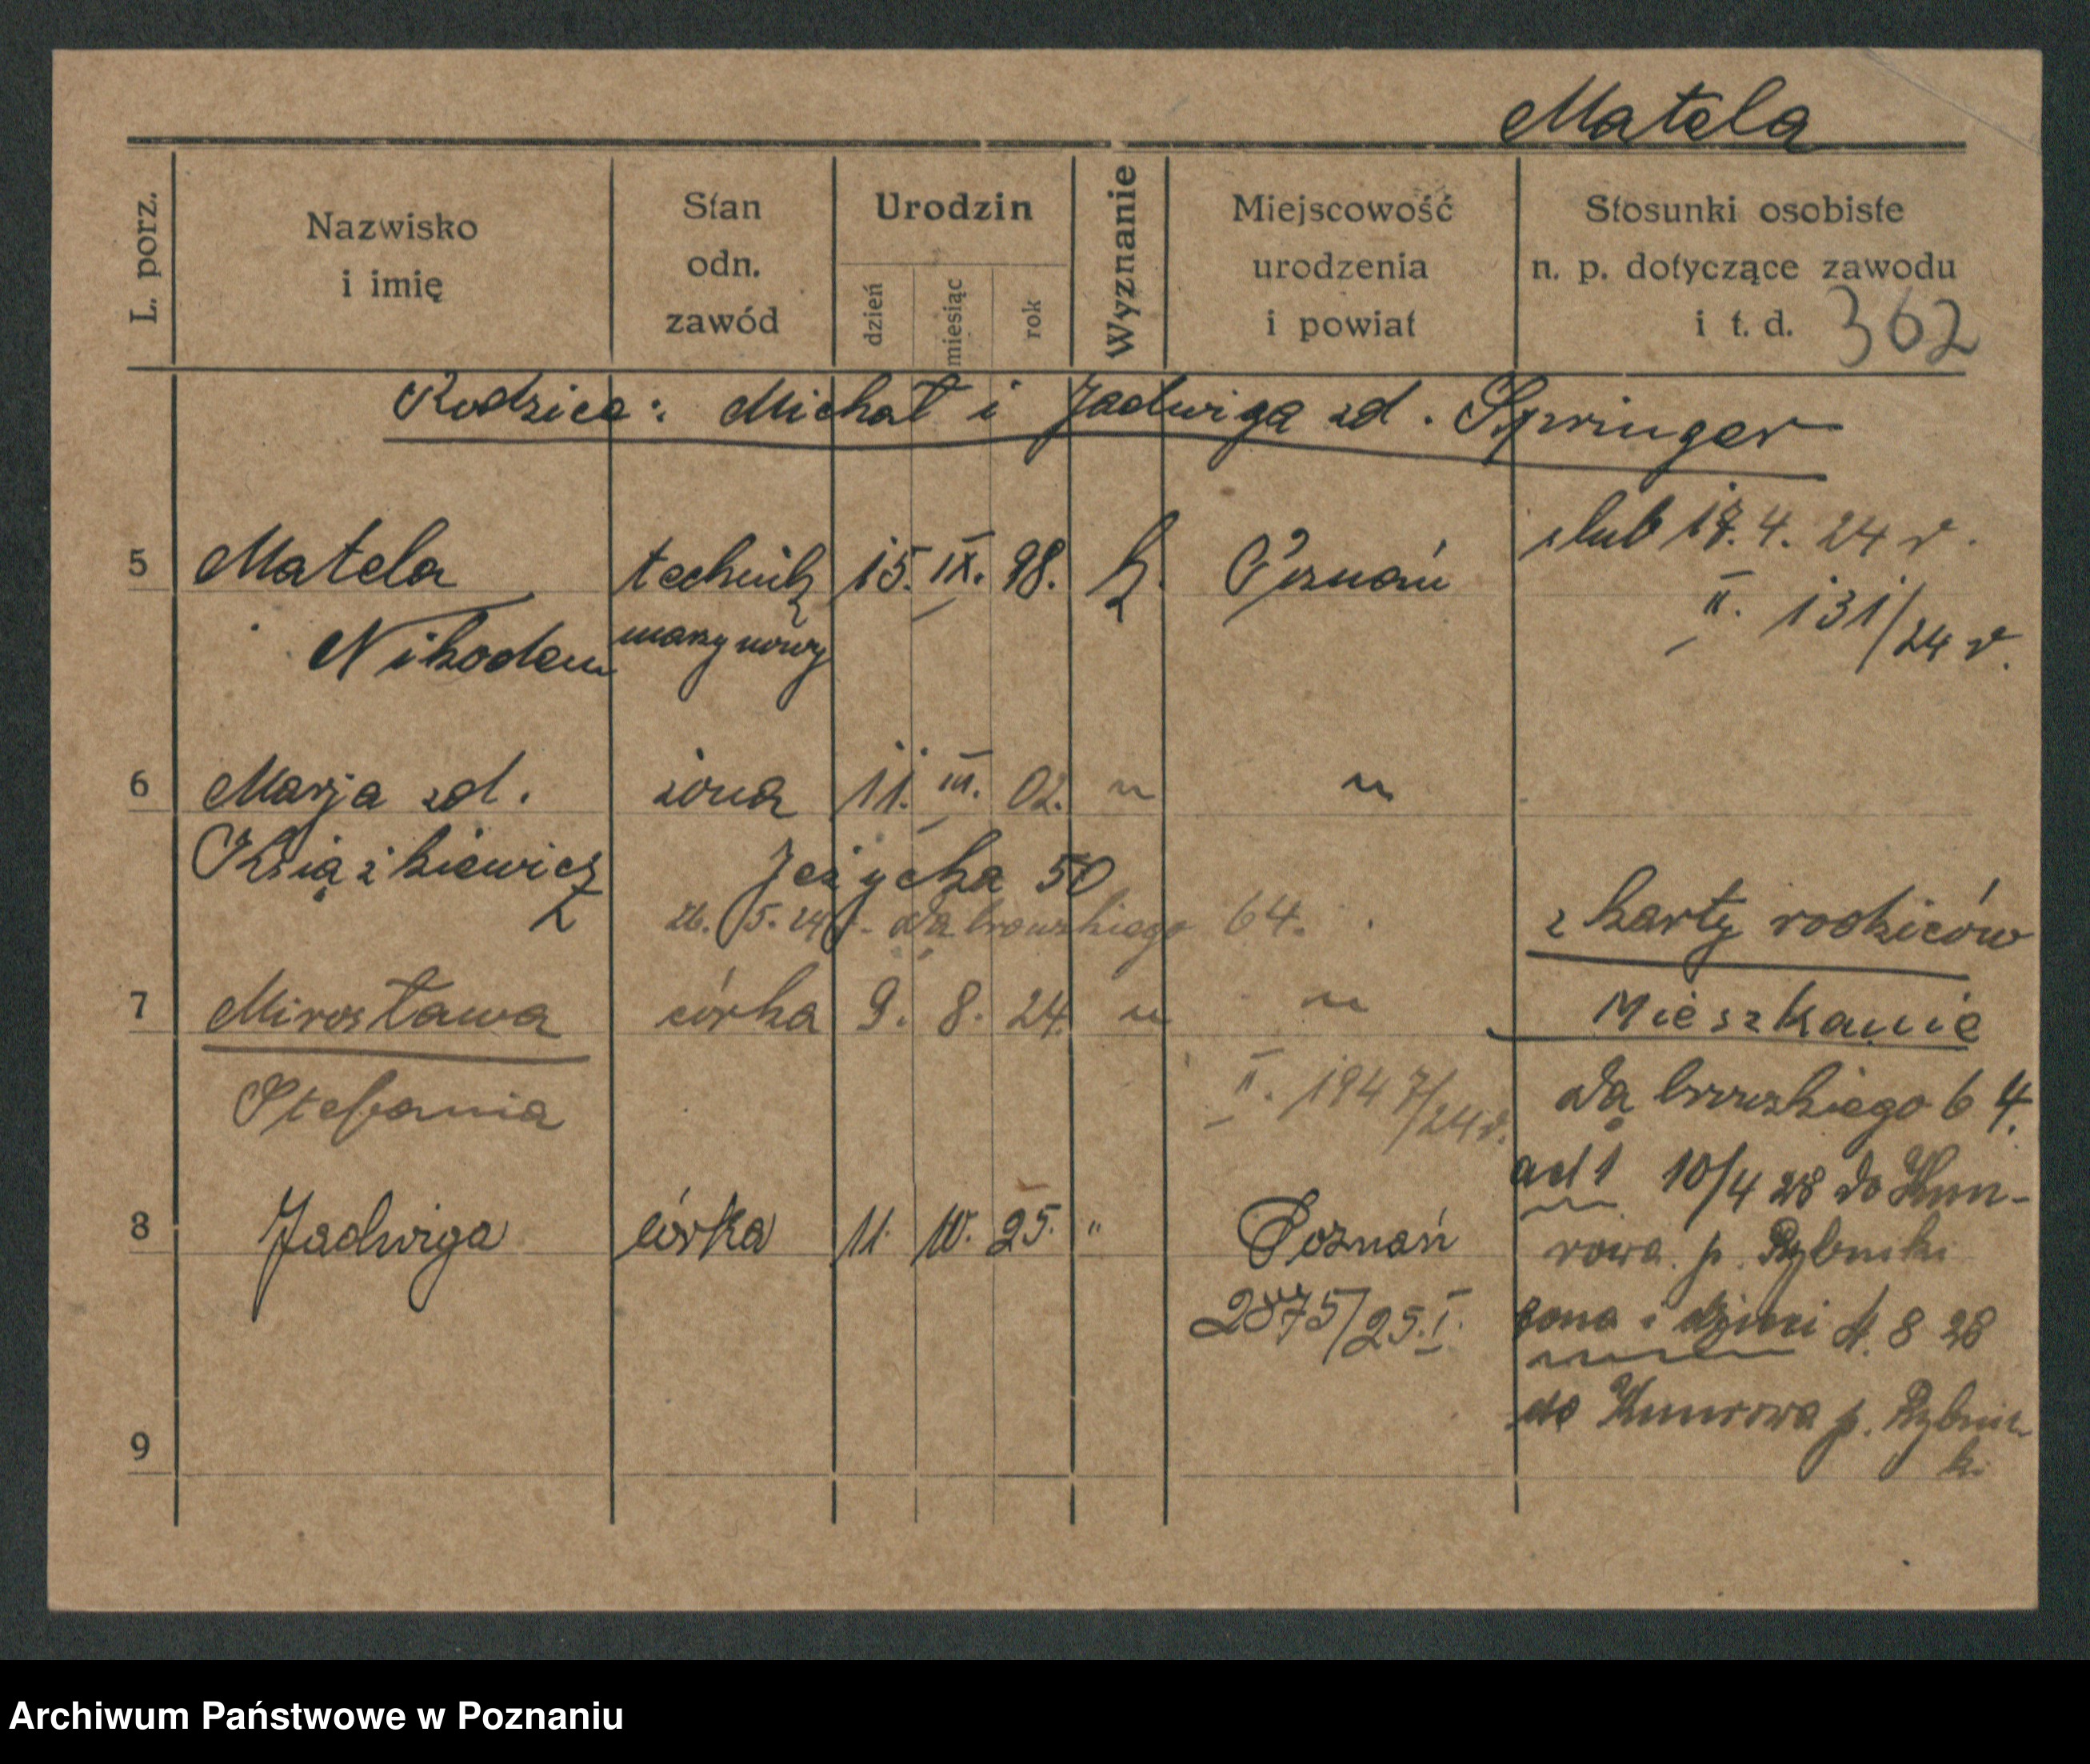 Matela
L. porz.
Nazwisko
i imię
Stan
odn.
zawód
Urodzin
dzień
miesiąc
rok
Wyznanie
Miejscowość
urodzenia
i powiat
Stosunki osobiste
n. p. dotyczące zawodu
i t. d.
362
Rodzice: Michał i Jadwiga zd. Springer
5 Matela technik 15. IX. 98. k. Poznań ślub 17. 4. 24 r.
Nikodem maszynowy II. 131/24 r.
6 Marja zd. żona 11. III. 02. " "
Książkiewicz Jeżycka 50
26. 5. 24 r. Dąbrowskiego 64.
z karty rodziców
7 Mirosława córka 9. 8. 24. " " Mieszkanie
Stefania II. 1947/24 r. Dąbrowskiego 64.
ad 1 10/4 28 do Knu-
8 Jadwiga córka 11. 10. 25. " Poznań rowa p. Rybniki
2875/25. I. żona i dzieci 4. 8 28
do Knurowa p. Rybnic
ki
9
Archiwum Państwowe w Poznaniu